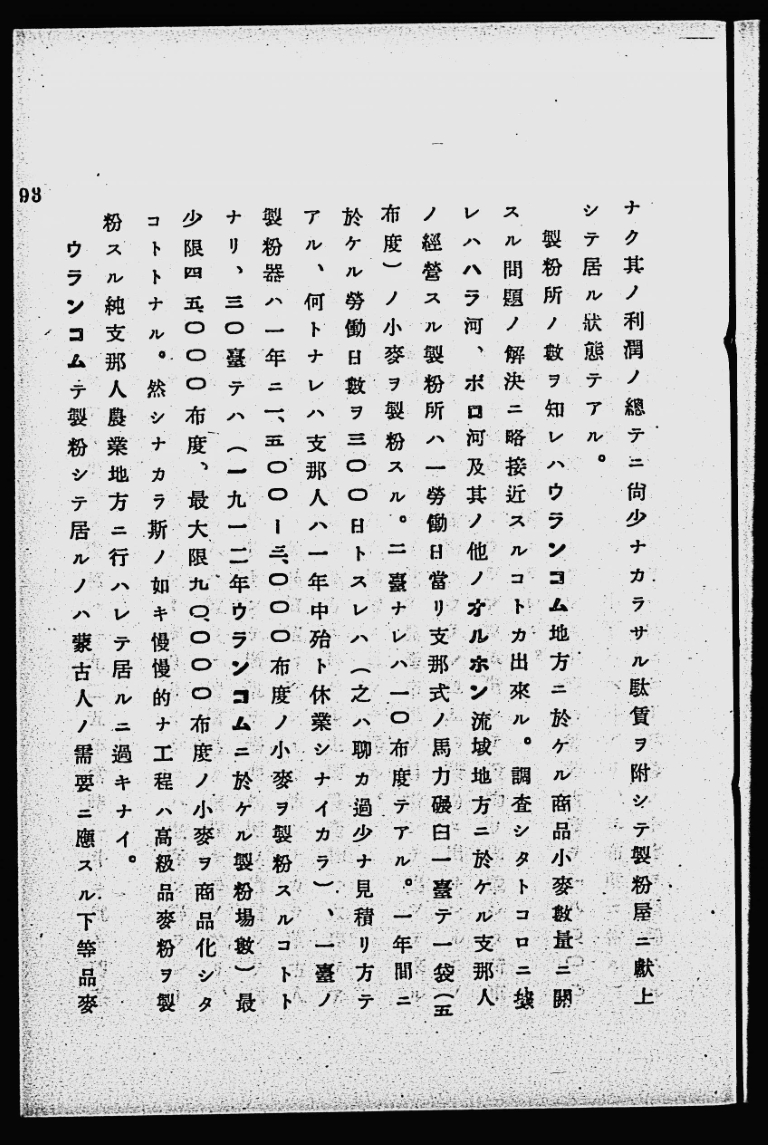 ナク其ノ利潤ノ總テニ尙少ナカラサル駄賃ヲ附シテ製粉屋ニ獻上
シテ居ル狀態テアル。
製粉所ノ數ヲ知レハウランコム地方ニ於ケル商品小麥數量ニ關
スル問題ノ解決ニ略接近スルコトカ出來ル。調査シタトコロニ據
レハハラ河、ボロ河及其ノ他ノオルホン流域地方ニ於ケル支那人
ノ經營スル製粉所ハ一勞働日當リ支那式ノ馬力碾臼一臺テ一袋(五
布度)ノ小麥ヲ製粉スル。二臺ナレハ一〇布度テアル。一年間ニ
於ケル勞働日數ヲ三〇〇日トスレハ(之ハ聊カ過少ナ見積リ方テ
アル、何トナレハ支那人ハ一年中殆ト休業シナイカラ)、一臺ノ
製粉器ハ一年ニ一、五〇〇ー三、〇〇〇布度ノ小麥ヲ製粉スルコトト
ナリ、三〇臺テハ(一九一二年ウランコムニ於ケル製粉場數)最
少限四五、〇〇〇布度、最大限九〇、〇〇〇布度ノ小麥ヲ商品化シタ
コトトナル。然シナカラ斯ノ如キ慢慢的ナ工程ハ高級品麥粉ヲ製
粉スル純支那人農業地方ニ行ハレテ居ルニ過キナイ。
ウランコムテ製粉シテ居ルノハ蒙古人ノ需要ニ應スル下等品麥
93